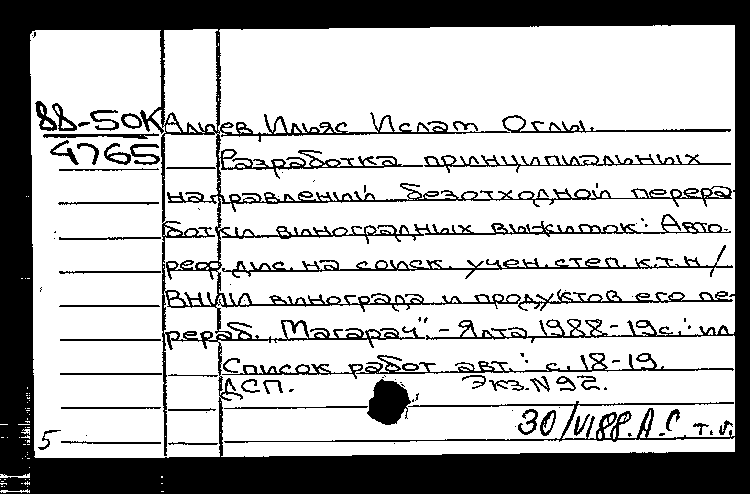 88-50К Алиев, Ильяс Ислам Оглы.
4765 Разработка принципиальных
направлений безотходной перера-
ботки виноградных выжимок: Авто-
реф. дис. на соиск. учен. степ. к.т.н./
ВНИИ винограда и продуктов его пе-
рераб. "Магарач".-Ялта, 1988-19с.: ил
Список работ авт.: с. 18-19.
ДСП. Экз.N92.
30/VI88. А.С. т.
5